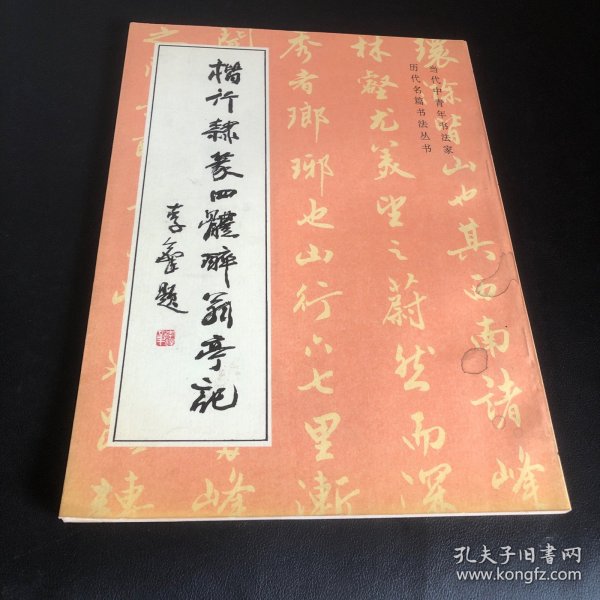 当代中青年书法家
历代名篇书法丛书
楷行隶篆四體醉翁亭記
李鐸題
環滁皆山也其西南諸峰
林壑尤美望之蔚然而深
秀者瑯琊也山行六七里漸
孔夫子旧书网
www.kongfz.com